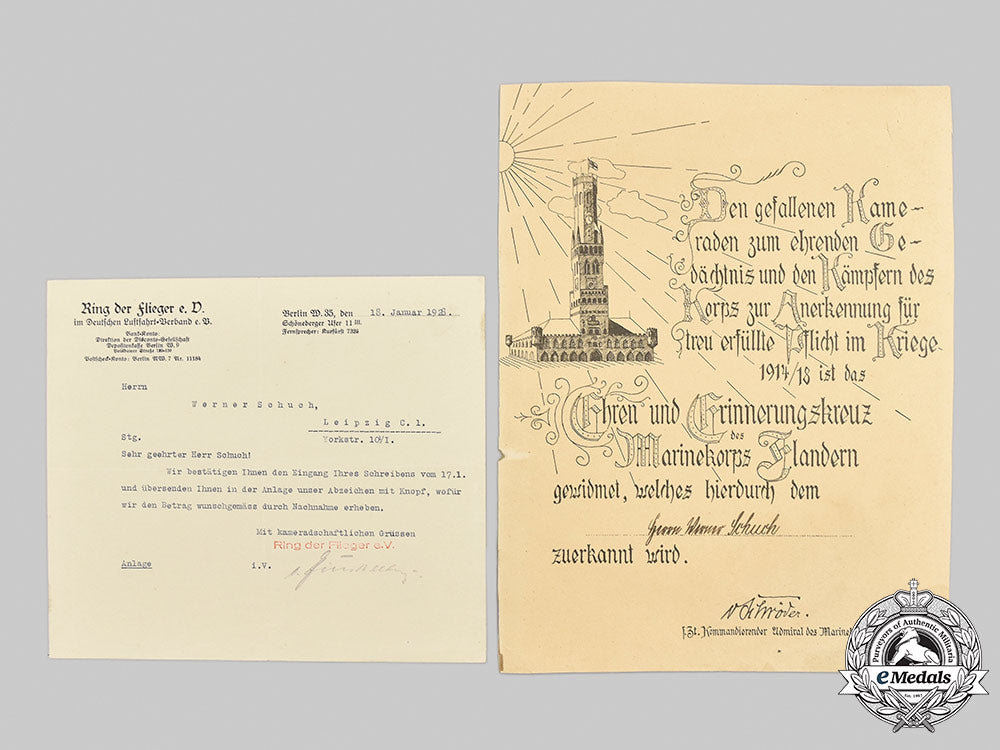 Ring der Flieger e. V.
im Deutschen Luftfahrt-Verband e. V.
Bank-Konto:
Direktion der Diskonto-Gesellschaft
Depositenkasse Berlin W. 9
Postscheck-Konto: Berlin NW. 7 Nr. 11184
Berlin W. 35, den 18. Januar 1928.
Schöneberger Ufer 11 III.
Fernsprecher: Kurfürst 7324
Herrn
Werner Schuch,
Leipzig C. 1.
Stg. Yorkstr. 10/I.
Sehr geehrter Herr Schuch!
Wir bestätigen Ihnen den Eingang Ihres Schreibens vom 17.1.
und übersenden Ihnen in der Anlage unser Abzeichen mit Knopf, wofür
wir den Betrag wunschgemäss durch Nachnahme erheben.
Mit kameradschaftlichen Grüssen
Ring der Flieger e.V.
Anlage i.V.
Den gefallenen Kame-
raden zum ehrenden Ge-
dächtnis und den Kämpfern des
Korps zur Anerkennung für
Treu erfüllte Pflicht im Kriege
1914/18 ist das
Ehren und Erinnerungskreuz
des
Marinekorps Flandern
gewidmet, welches hierdurch dem
Herrn Werner Schuch
zuerkannt wird.
v Schröder.
z. Zt. Kommandierender Admiral des Marine
Purveyors of Authentic Militaria
eMedals
Est. 1967